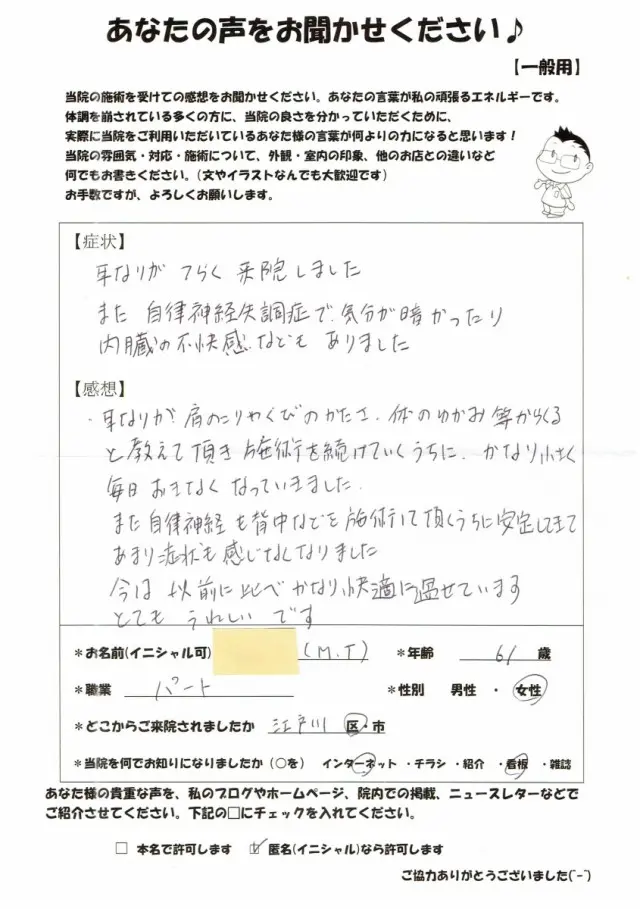 あなたの声をお聞かせください♪
【一般用】
当院の施術を受けての感想をお聞かせください。あなたの言葉が私の頑張るエネルギーです。
体調を崩されている多くの方に、当院の良さを分かっていただくために、
実際に当院をご利用いただいているあなた様の言葉が何よりの力になると思います！
当院の雰囲気・対応・施術について、外観・室内の印象、他のお店との違いなど
何でもお書きください。(文やイラストなんでも大歓迎です)
お手数ですが、よろしくお願いします。
【症状】
耳なりが つらく 来院しました
また 自律神経失調症で 気分が暗かったり
内臓の不快感なども ありました
【感想】
・耳なりが 肩のこりやくびのかたさ、体のゆがみ等からくる
と教えて頂き 施術を続けていくうちに、かなり小さく
毎日 おきなく なっていきました。
また自律神経も背中などを施術して頂くうちに安定してきて
あまり症状も感じなくなりました
今は 以前に比べ かなり快適に過せています
とても うれしい です
＊お名前(イニシャル可) (M.T) ＊年齢 61 歳
＊職業 パート ＊性別 男性 ・ 女性
＊どこからご来院されましたか 江戸川 区・市
＊当院を何でお知りになりましたか (○を) インターネット ・チラシ ・紹介 ・看板 ・雑誌
あなた様の貴重な声を、私のブログやホームページ、院内での掲載、ニュースレターなどで
ご紹介させてください。下記の□にチェックを入れてください。
□ 本名で許可します ☑ 匿名(イニシャル)なら許可します
ご協力ありがとうございました(^-^)